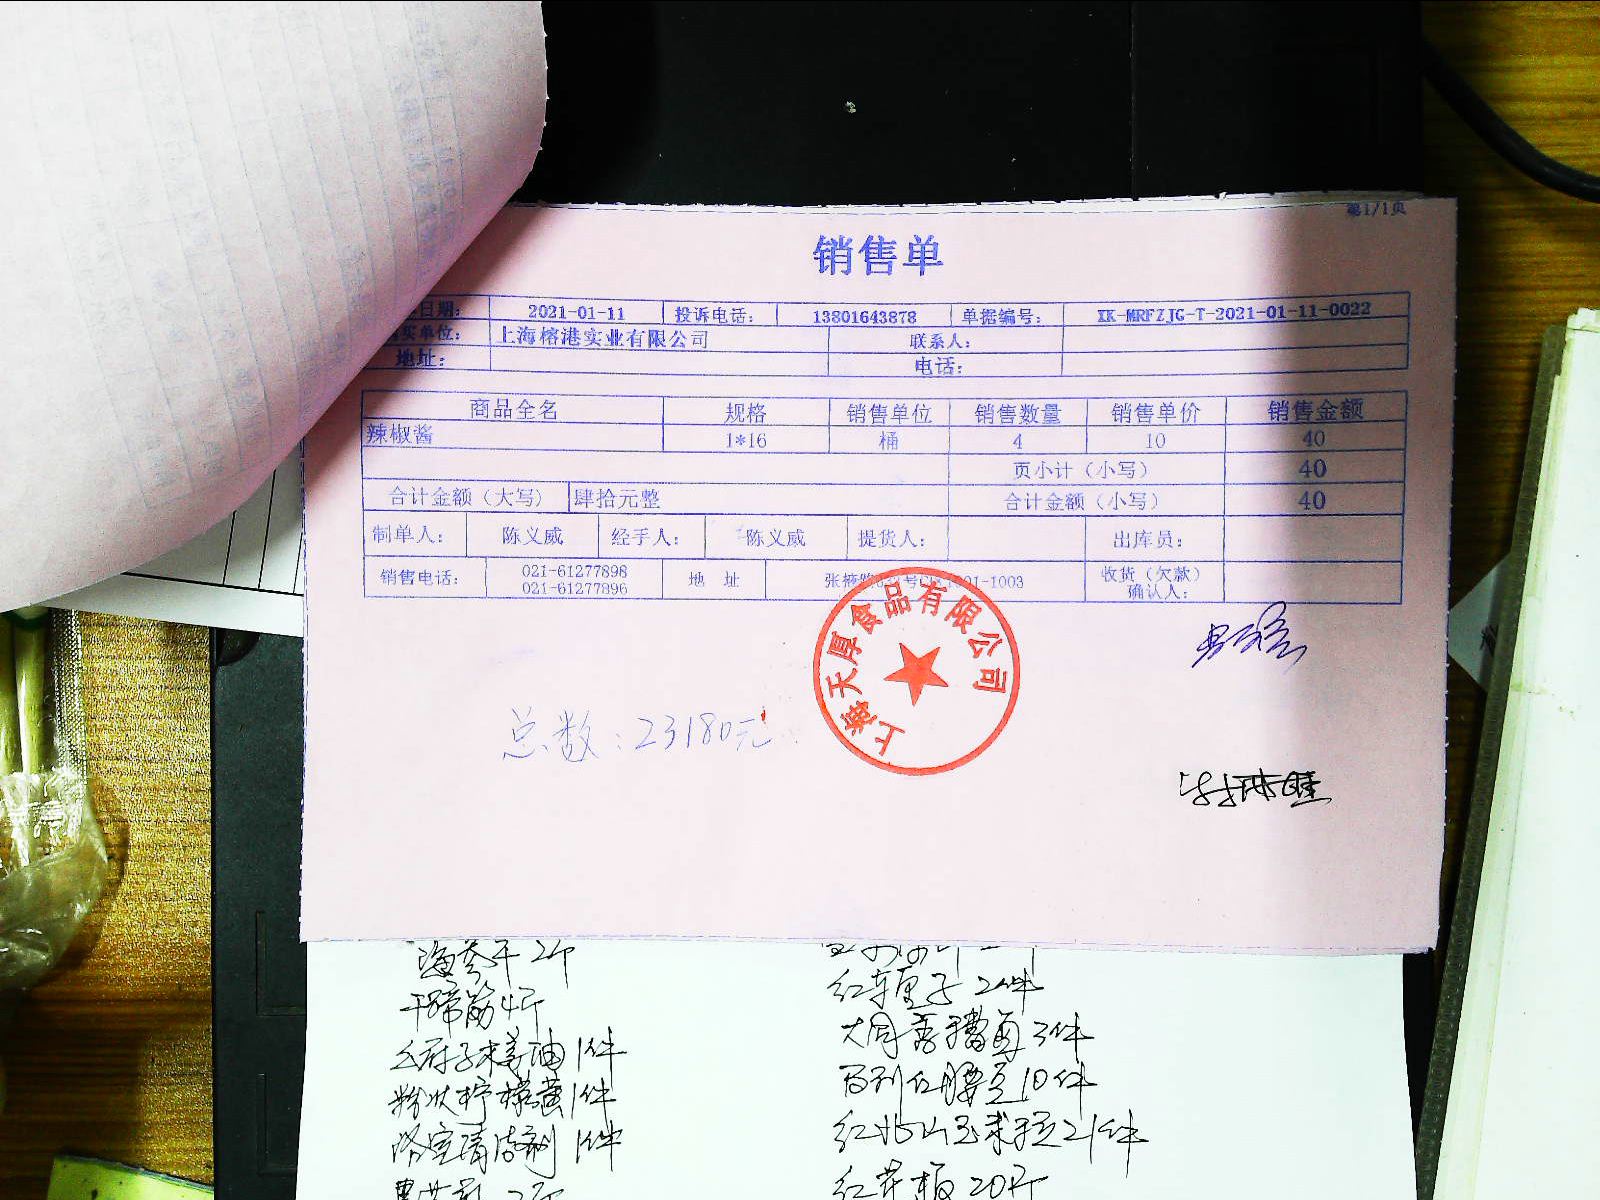 第1/1页
销售单
日期: 2021-01-11 投诉电话: 13801643878 单据编号: XK-MRFZJG-T-2021-01-11-0022
买单位: 上海榕港实业有限公司 联系人:
地址: 电话:
商品全名 规格 销售单位 销售数量 销售单价 销售金额
辣椒酱 1*16 桶 4 10 40
页小计（小写） 40
合计金额（大写） 肆拾元整 合计金额（小写） 40
制单人: 陈义威 经手人: 陈义威 提货人: 出库员:
销售电话: 021-61277898 021-61277896 地 址 张掖路 01-1003 收货（欠款）确认人:
上海天厚食品有限公司
总数:23180元
海参干 2斤
干蹄筋 4斤 红车厘子 2件
木姜油 1件 3件
粉状柠檬黄 1件 红腰豆 10件
清洁剂 1件 玉米粒 21件
20斤